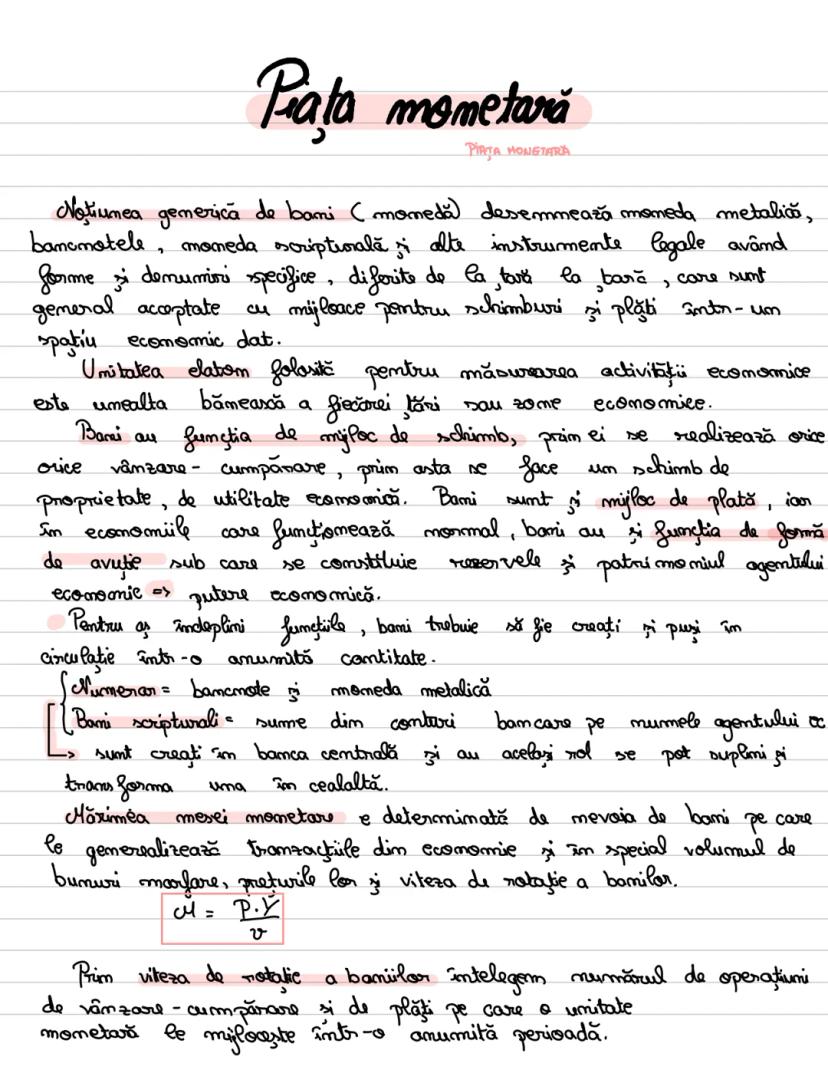 Piața monetară
PIAȚA MONETARĂ
Noțiunea generică de bani (monedă) desemnează moneda metalică,
bancnotele, moneda scripturală și alte instrumente legale având
forme și denumiri specifice, diferite de la țară la țară, care sunt
general acceptate cu mijloace pentru schimburi și plăți într-un
spațiu economic dat.
Unitatea etalon folosită pentru măsurarea activității economice
este unealta bănească a fiecărei țări sau zone economice.
Bani au funcția de mijloc de schimb, prin ei se realizează orice
orice vânzare-cumpărare, prin asta se face un schimb de
proprietate, de utilitate economică. Bani sunt și mijloc de plată, iar
în economiile care funcționează normal, bani au și funcția de formă
de avuție sub care se constituie rezervele și patrimoniul agentului
economic => putere economică.
Pentru aș îndeplini funcțiile, bani trebuie să fie creați și puși în
circulație într-o anumită cantitate.
Numerar = bancnote și moneda metalică
Bani scripturali = sume din conturi bancare pe numele agentului ec
→ sunt creați în banca centrală și au același rol se pot suplini și
transforma una în cealaltă.
Mărimea mesei monetare e determinată de nevoia de bani pe care
le generealizează tranzacțiile din economie și în special volumul de
bunuri marfare, prețurile lor și viteza de rotație a banilor.
M = P·Y / v
Prin viteza de rotație a baniilor întelegem numărul de operațiuni
de vânzare-cumpărare și de plăți pe care o unitate
monetară le mijlocește într-o anumită perioadă.